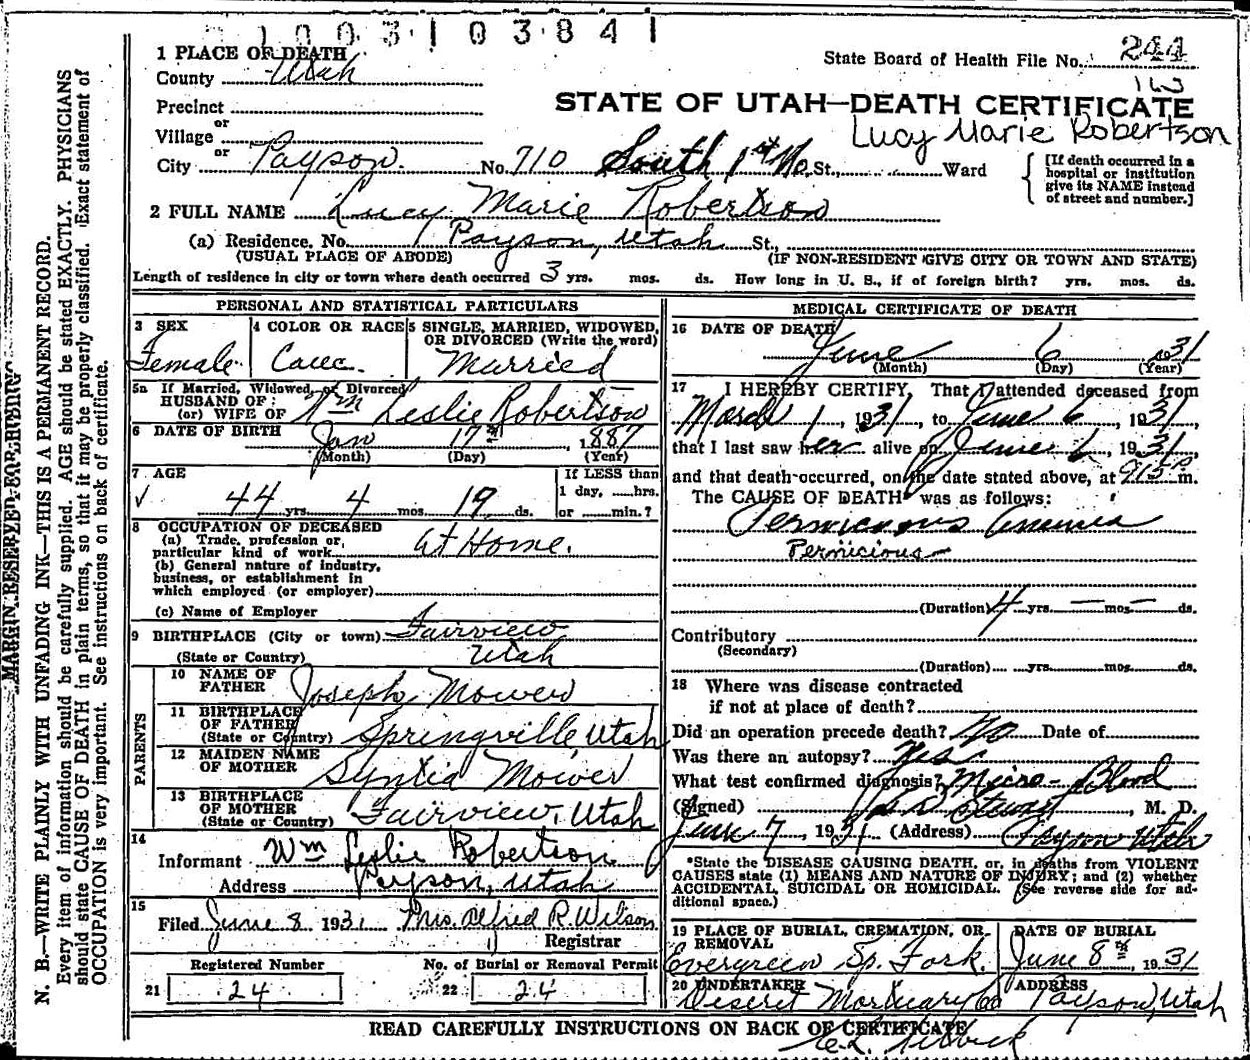 1003103841
1 PLACE OF DEATH
State Board of Health File No. 244
County Utah
163
Precinct
STATE OF UTAH—DEATH CERTIFICATE
or
Village
Lucy Marie Robertson
or
City Payson. No. 710 South 1st No St., Ward
[If death occurred in a hospital or institution give its NAME instead of street and number.]
2 FULL NAME Lucy Marie Robertson
(a) Residence, No. Payson, Utah St.,
(USUAL PLACE OF ABODE) (IF NON-RESIDENT GIVE CITY OR TOWN AND STATE)
Length of residence in city or town where death occurred 3 yrs. mos. ds. How long in U. S., if of foreign birth? yrs. mos. ds.
PERSONAL AND STATISTICAL PARTICULARS
3 SEX
Female
4 COLOR OR RACE
Cauc.
5 SINGLE, MARRIED, WIDOWED, OR DIVORCED (Write the word)
Married
5a If Married, Widowed, or Divorced
HUSBAND OF
(or) WIFE OF Wm Leslie Robertson
6 DATE OF BIRTH Jan 17 1887
(Month) (Day) (Year)
7 AGE
44 yrs. 4 mos. 19 ds.
If LESS than
1 day, hrs.
or min.?
8 OCCUPATION OF DECEASED
(a) Trade, profession or,
particular kind of work At Home.
(b) General nature of industry,
business, or establishment in
which employed (or employer)
(c) Name of Employer
9 BIRTHPLACE (City or town) Fairview
(State or Country) Utah
PARENTS
10 NAME OF FATHER Joseph Mower
11 BIRTHPLACE OF FATHER
(State or Country) Springville, Utah
12 MAIDEN NAME OF MOTHER Syntia Mower
13 BIRTHPLACE OF MOTHER
(State or Country) Fairview, Utah
14
Informant Wm Leslie Robertson
Address Payson, Utah
15
Filed June 8 1931 Mrs. Alfred R. Wilson
Registrar
Registered Number
21 24
No. of Burial or Removal Permit
22 24
MEDICAL CERTIFICATE OF DEATH
16 DATE OF DEATH
June 6 1931
(Month) (Day) (Year)
17 I HEREBY CERTIFY, That I attended deceased from
March 1, 1931, to June 6, 1931,
that I last saw her alive on June 6, 1931,
and that death occurred, on the date stated above, at 915 P m.
The CAUSE OF DEATH* was as follows:
Pernicious Anemia
Pernicious
(Duration) 4 yrs. — mos. — ds.
Contributory
(Secondary)
(Duration) yrs. mos. ds.
18 Where was disease contracted
if not at place of death?
Did an operation precede death? No Date of
Was there an autopsy? Yes
What test confirmed diagnosis? Micro- Blood
(Signed) Stewart, M. D.
June 7, 1931 (Address) Payson Utah
*State the DISEASE CAUSING DEATH, or, in deaths from VIOLENT
CAUSES state (1) MEANS AND NATURE OF INJURY; and (2) whether
ACCIDENTAL, SUICIDAL OR HOMICIDAL. (See reverse side for ad-
ditional space.)
19 PLACE OF BURIAL, CREMATION, OR
REMOVAL
Evergreen Sp. Fork.
DATE OF BURIAL
June 8th, 1931
20 UNDERTAKER
Deseret Mortuary Co
ADDRESS
Payson, Utah
READ CAREFULLY INSTRUCTIONS ON BACK OF CERTIFICATE
MARGIN RESERVED FOR BINDING
N. B.—WRITE PLAINLY WITH UNFADING INK—THIS IS A PERMANENT RECORD.
Every item of information should be carefully supplied. AGE should be stated EXACTLY. PHYSICIANS
should state CAUSE OF DEATH in plain terms, so that it may be properly classified. Exact statement of
OCCUPATION is very important. See instructions on back of certificate.